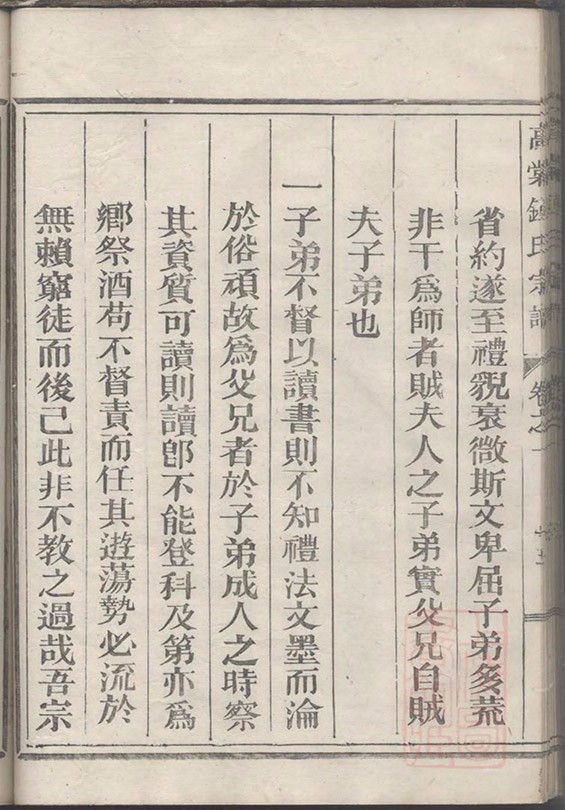 高棠鍾氏宗譜 卷之一
省約遂至禮貌衰微斯文卑屈子弟多荒
非干爲師者賊夫人之子弟實父兄自賊
夫子弟也
一子弟不督以讀書則不知禮法文墨而淪
於俗頑故爲父兄者於子弟成人之時察
其資質可讀則讀卽不能登科及第亦爲
鄉祭酒苟不督責而任其遊蕩勢必流於
無賴窮徒而後已此非不教之過哉吾宗